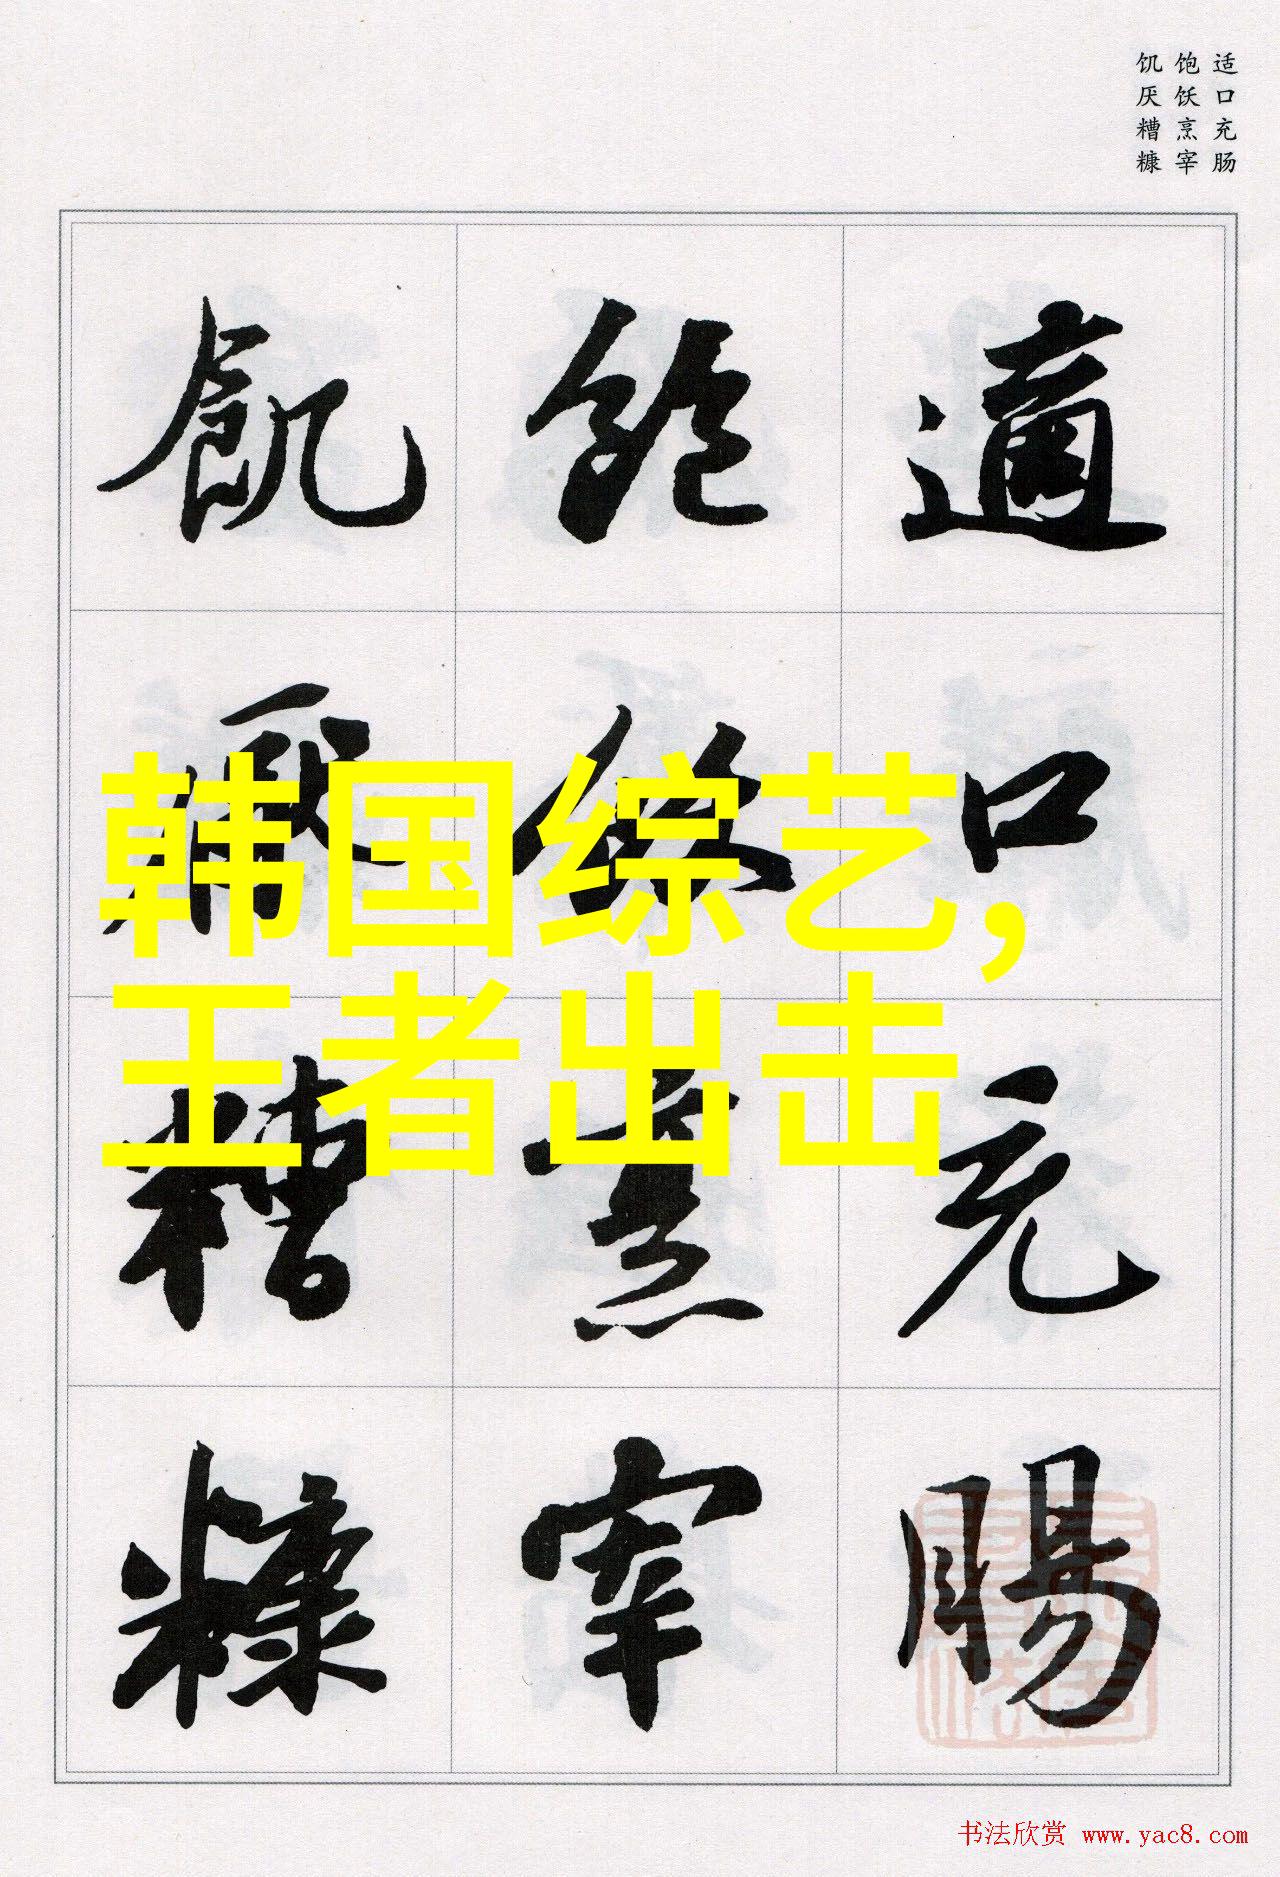 适口充肠
饱饫烹宰
饥厌糟糠
適口充腸
飽飫烹宰
飢厭糟糠
韩国综艺,
王者出击
书法欣赏 www.yac8.com